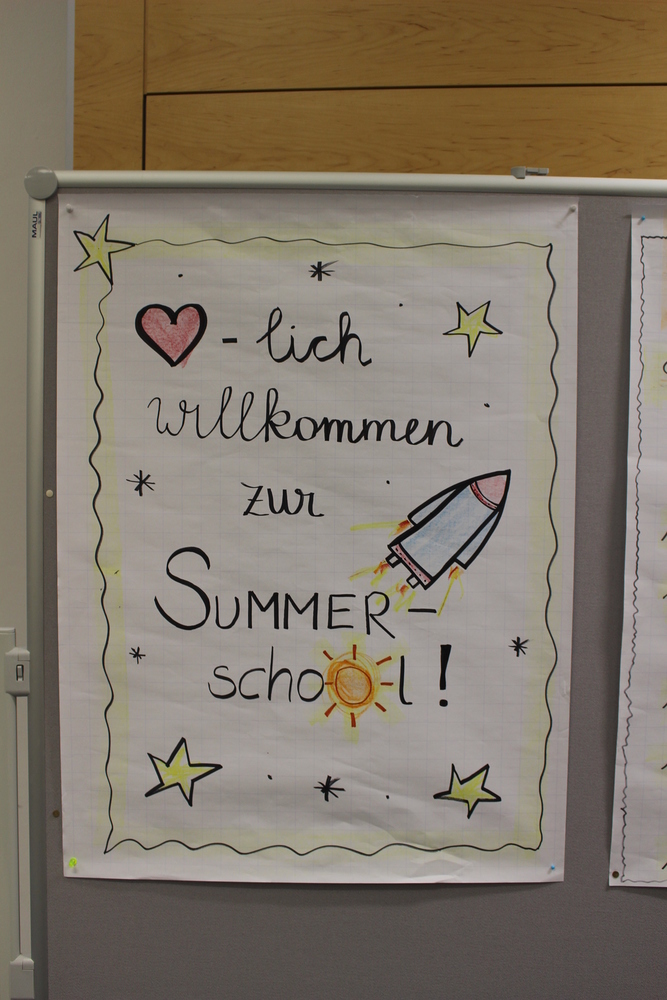 MAUL
-lich
willkommen
zur
SUMMER-
school!